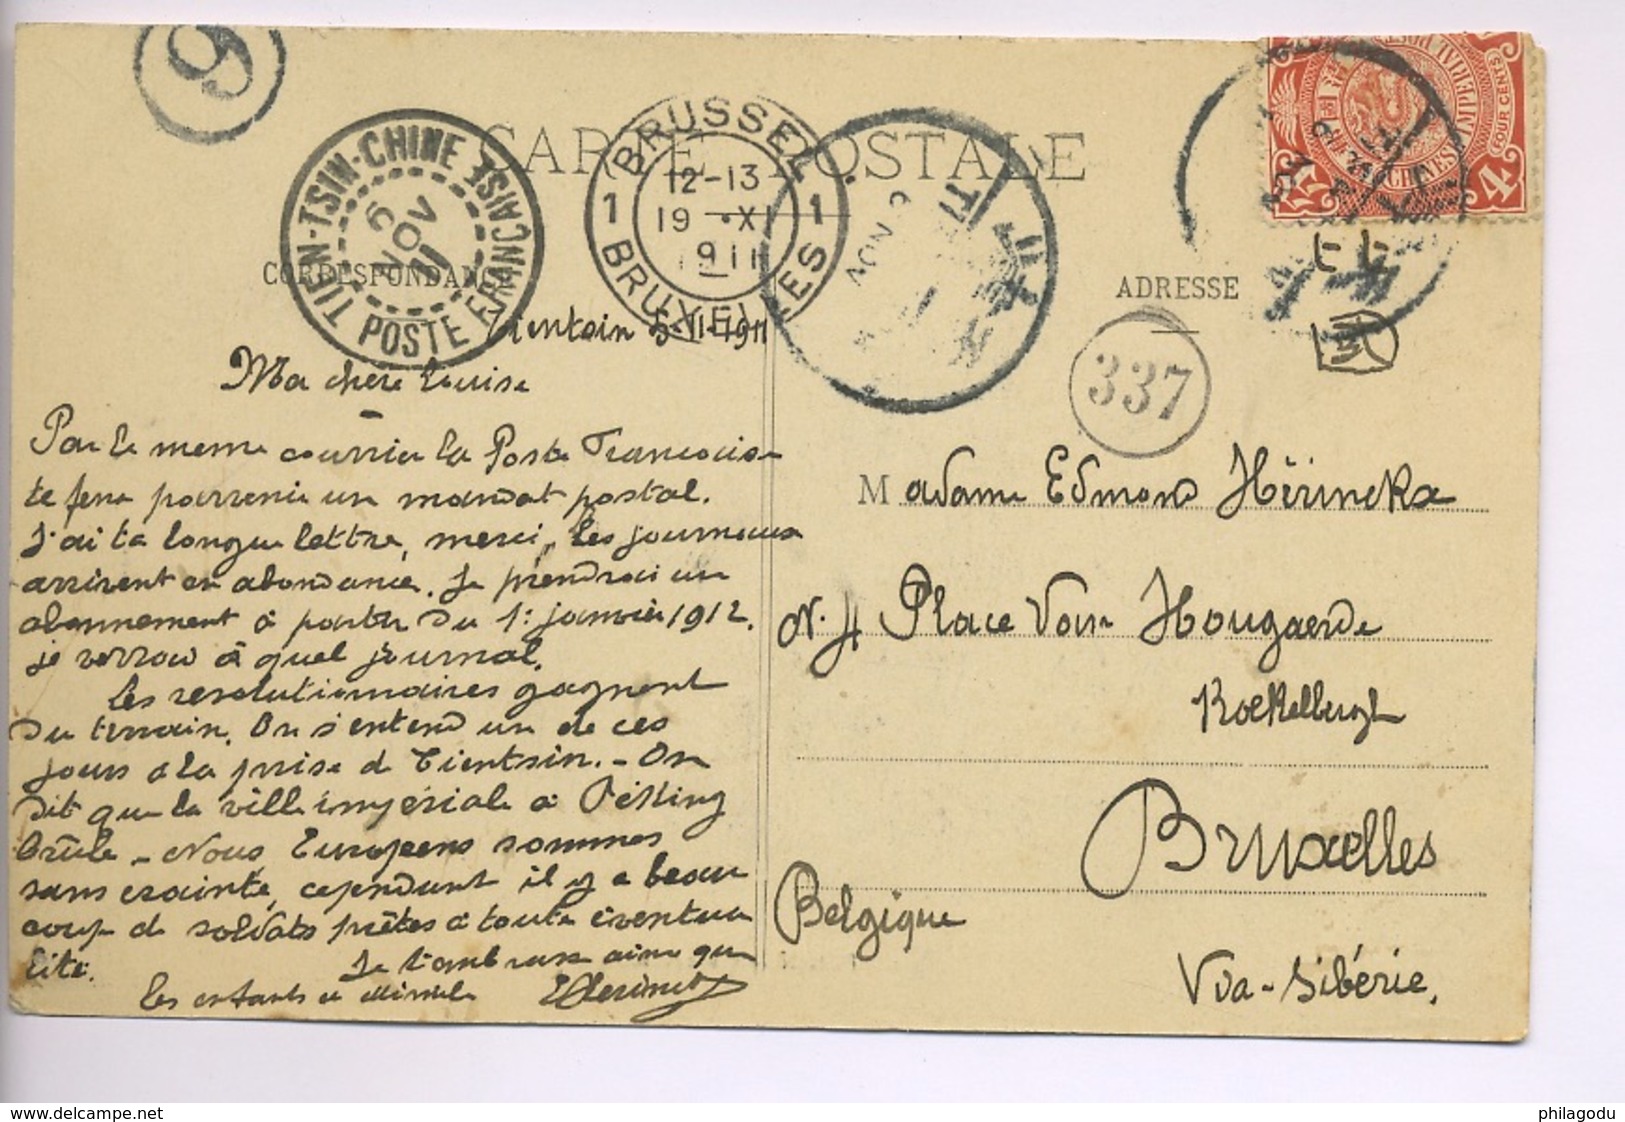 CARTE POSTALE
CORRESPONDANCE
ADRESSE
6
TIEN-TSIN-CHINE
POSTE FRANÇAISE
6
NOV
11
BRUSSEL
1 1
12-13
19 XI
1911
BRUXELLES
NOV
337
CHINESE IMPERIAL POST
FOUR CENTS
4
Tientsin 5-11-1911
Ma chère Louise
Par le meme courrier la Poste Francaise
te fera parvenir un mandat postal.
J'ai ta longue lettre, merci, les journaux
arrivent en abondance. Je prendrai un
abonnement à partir du 1r janvier 1912.
je verrai à quel journal.
Les revolutionnaires gagnent
du terrain. On s'entend un de ces
jours à la prise de Tientsin. - On
dit que la ville impériale à Péking
brûle - Nous Européens sommes
sans crainte, cependant il y a beau
coup de soldats prêtes à toute éventua
lité.
Je t'embrasse ainsi que
les enfants et
Madame Edmond Hérinckx
N. 4 Place Van Hougaerde
Koekelbergh
Bruxelles
Belgique
Via-Sibérie.
philagodu